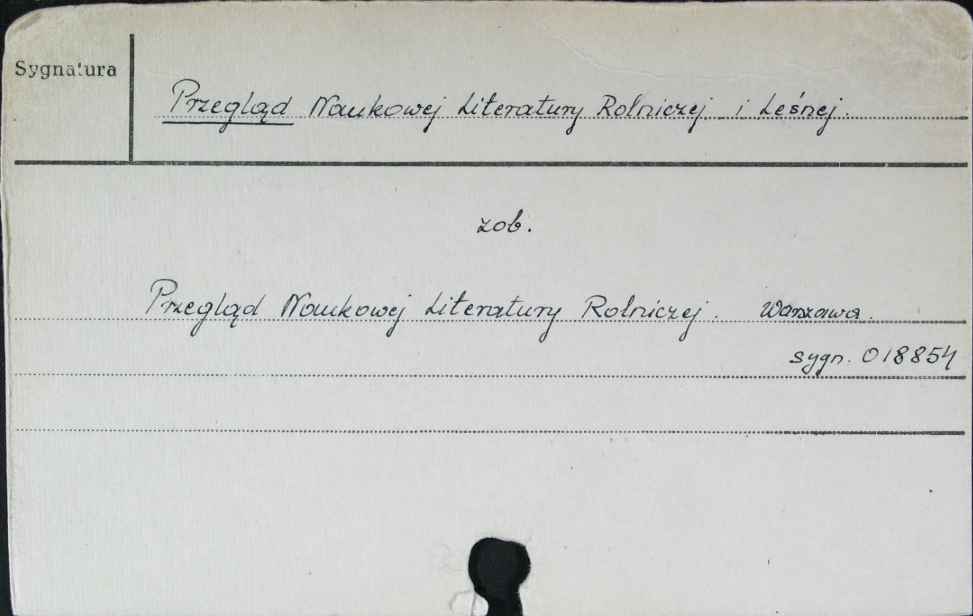 Sygnatura
Przegląd Naukowej Literatury Rolniczej i Leśnej.
zob.
Przegląd Naukowej Literatury Rolniczej. Warszawa.
sygn. 018854